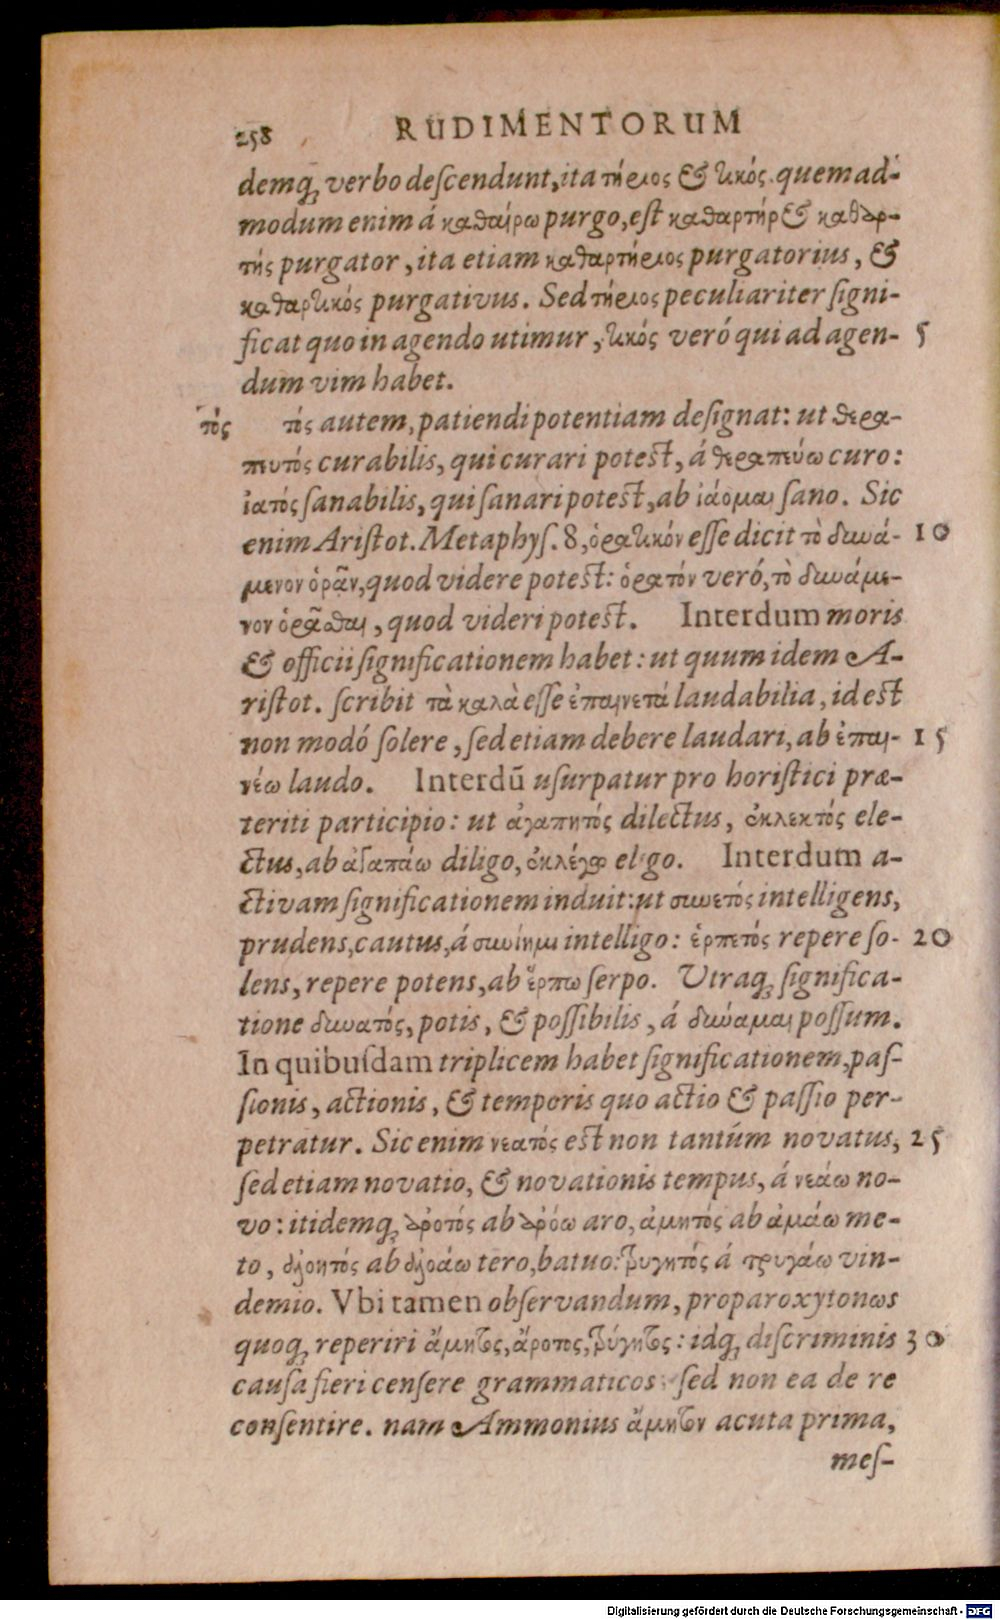 258 RUDIMENTORUM
demq́ꝫ verbo deſcendunt, ita τήριος & τικός. quemad-
modum enim á καθαίρω purgo, eſt καθαρτήρ & καθαρ-
τής purgator, ita etiam καθαρτήριος purgatorius, &
καθαρτικός purgativus. Sed τήριος peculiariter ſigni-
ficat quo in agendo utimur, τικός veró qui ad agen- 5
dum vim habet.
τός τός autem, patiendi potentiam deſignat: ut θερα-
πευτός curabilis, qui curari poteſt, á θεραπεύω curo:
ἰατός ſanabilis, qui ſanari poteſt, ab ἰάομαι ſano. Sic
enim Ariſtot. Metaphyſ. 8, ὁρατικόν eſſe dicit τὸ δυνά- 10
μενον ὁρᾶν, quod videre poteſt: ὁρατόν veró, τὸ δυνάμε-
νον ὁρᾶσθαι, quod videri poteſt. Interdum moris
& officii ſignificationem habet: ut quum idem A-
riſtot. ſcribit τὰ καλὰ eſſe ἐπαινετά laudabilia, id eſt
non modó ſolere, ſed etiam debere laudari, ab ἐπαι- 15
νέω laudo. Interdū uſurpatur pro horiſtici præ-
teriti participio: ut ἀγαπητός dilectus, ἐκλεκτός ele-
ctus, ab ἀγαπάω diligo, ἐκλέγω eligo. Interdum a-
ctivam ſignificationem induit: ut συνετός intelligens,
prudens, cautus, á συνίημι intelligo: ἑρπετός repere ſo- 20
lens, repere potens, ab ἕρπω ſerpo. Utraq́ꝫ ſignifica-
tione δυνατός, potis, & poſſibilis, á δύναμαι poſſum.
In quibuſdam triplicem habet ſignificationem, paſ-
ſionis, actionis, & temporis quo actio & paſſio per-
petratur. Sic enim νεατός eſt non tantúm novatus, 25
ſed etiam novatio, & novationis tempus, á νεάω no-
vo: itidemq́ꝫ ἀροτός ab ἀρόω aro, ἀμητός ab ἀμάω me-
to, ἀλοητός ab ἀλοάω tero, batuo: τρυγητός á τρυγάω vin-
demio. Vbi tamen obſervandum, proparoxytonωs
quoq́ꝫ reperiri ἄμητος, ἄροτος, τρύγητος: idq́ꝫ diſcriminis 30
cauſa fieri cenſere grammaticos: ſed non ea de re
conſentire. nam Ammonius ἄμητον acuta prima,
meſ-
Digitalisierung gefördert durch die Deutsche Forschungsgemeinschaft - DFG